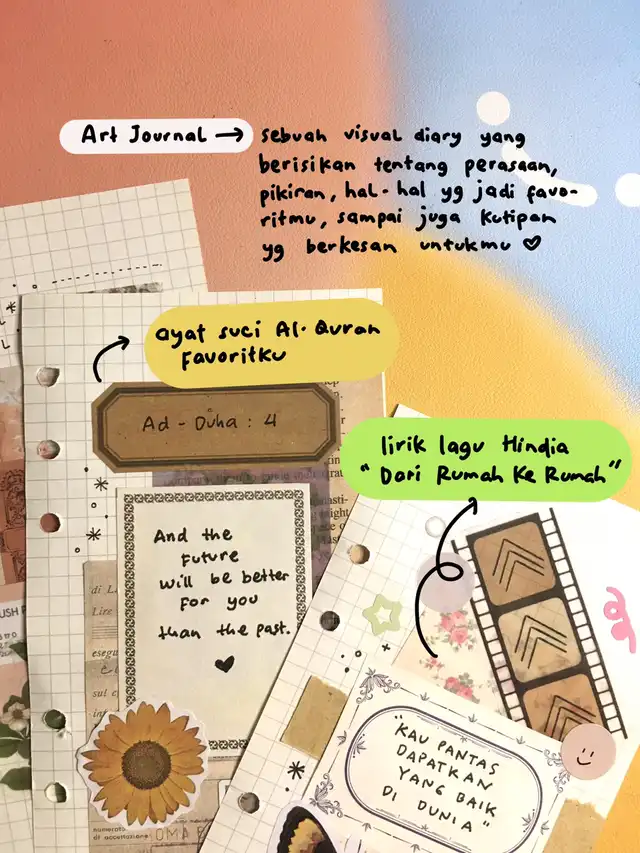 Art Journal → sebuah visual diary yang
berisikan tentang perasaan,
pikiran, hal-hal yg jadi favo-
ritmu, sampai juga kutipan
yg berkesan untukmu ♡
ayat suci Al-Quran
Favoritku
Ad-Duha: 4
lirik lagu Hindia
"Dari Rumah Ke Rumah"
And the
Future
will be better
For you
than the past.
di L
Lire
esegu
sui c
"KAU PANTAS
DAPATKAN
YANG BAIK
DI DUNIA"
numerato
di accettazione